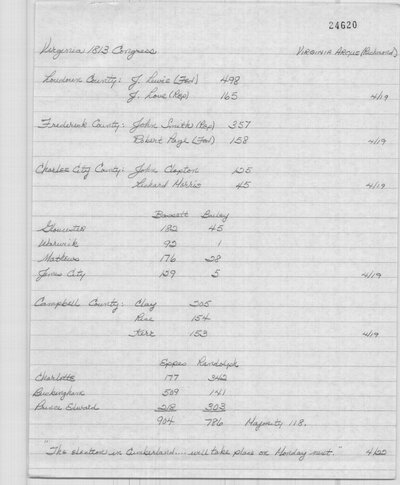 24620
Virginia 1813 Congress VIRGINIA ARGUS (Richmond)
Loudoun County: J. Lewis (Fed) 498
J. Love (Rep) 165 4/19
Frederick County: John Smith (Rep) 357
Robert Page (Fed) 158 4/19
Charles City County: John Clopton 125
45 4/19
Bassett Bailey
Gloucester 182 45
Warwick 92 1
Mathews 176 28
James City 129 5 4/19
Campbell County: Clay 205
Rice 154
Kerr 153 4/19
Eppes Randolph
Charlotte 177 342
Buckingham 509 141
Prince Edward 218 303
904 786 Majority 118.
"The election in Cumberland.... will take place on Monday next." 4/22